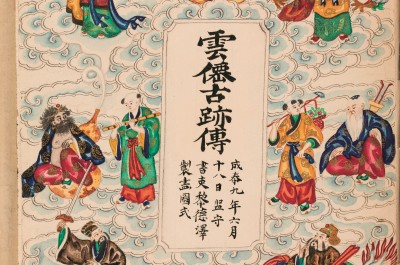 雲僊古跡傳
成泰九年六月
十八日監守
書吏黎德澤
製畫國式